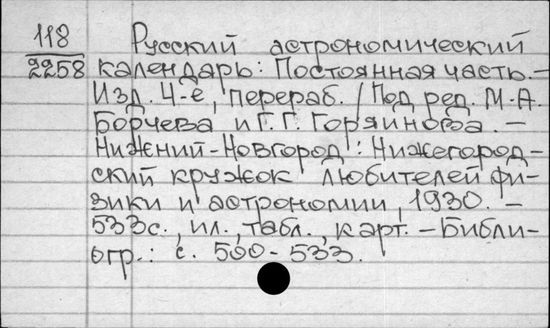 118 Русский астрономический
2258 календарь: Постоянная часть. –
Изд. 4-е, перераб. / Под ред. М.А.
Борчева и Г.Г. Горяинова. –
Нижний-Новгород: Нижегород-
ский кружок любителей фи-
зики и астрономии, 1930. –
533с., ил., табл., карт. – Библи-
огр.: с. 500-533.